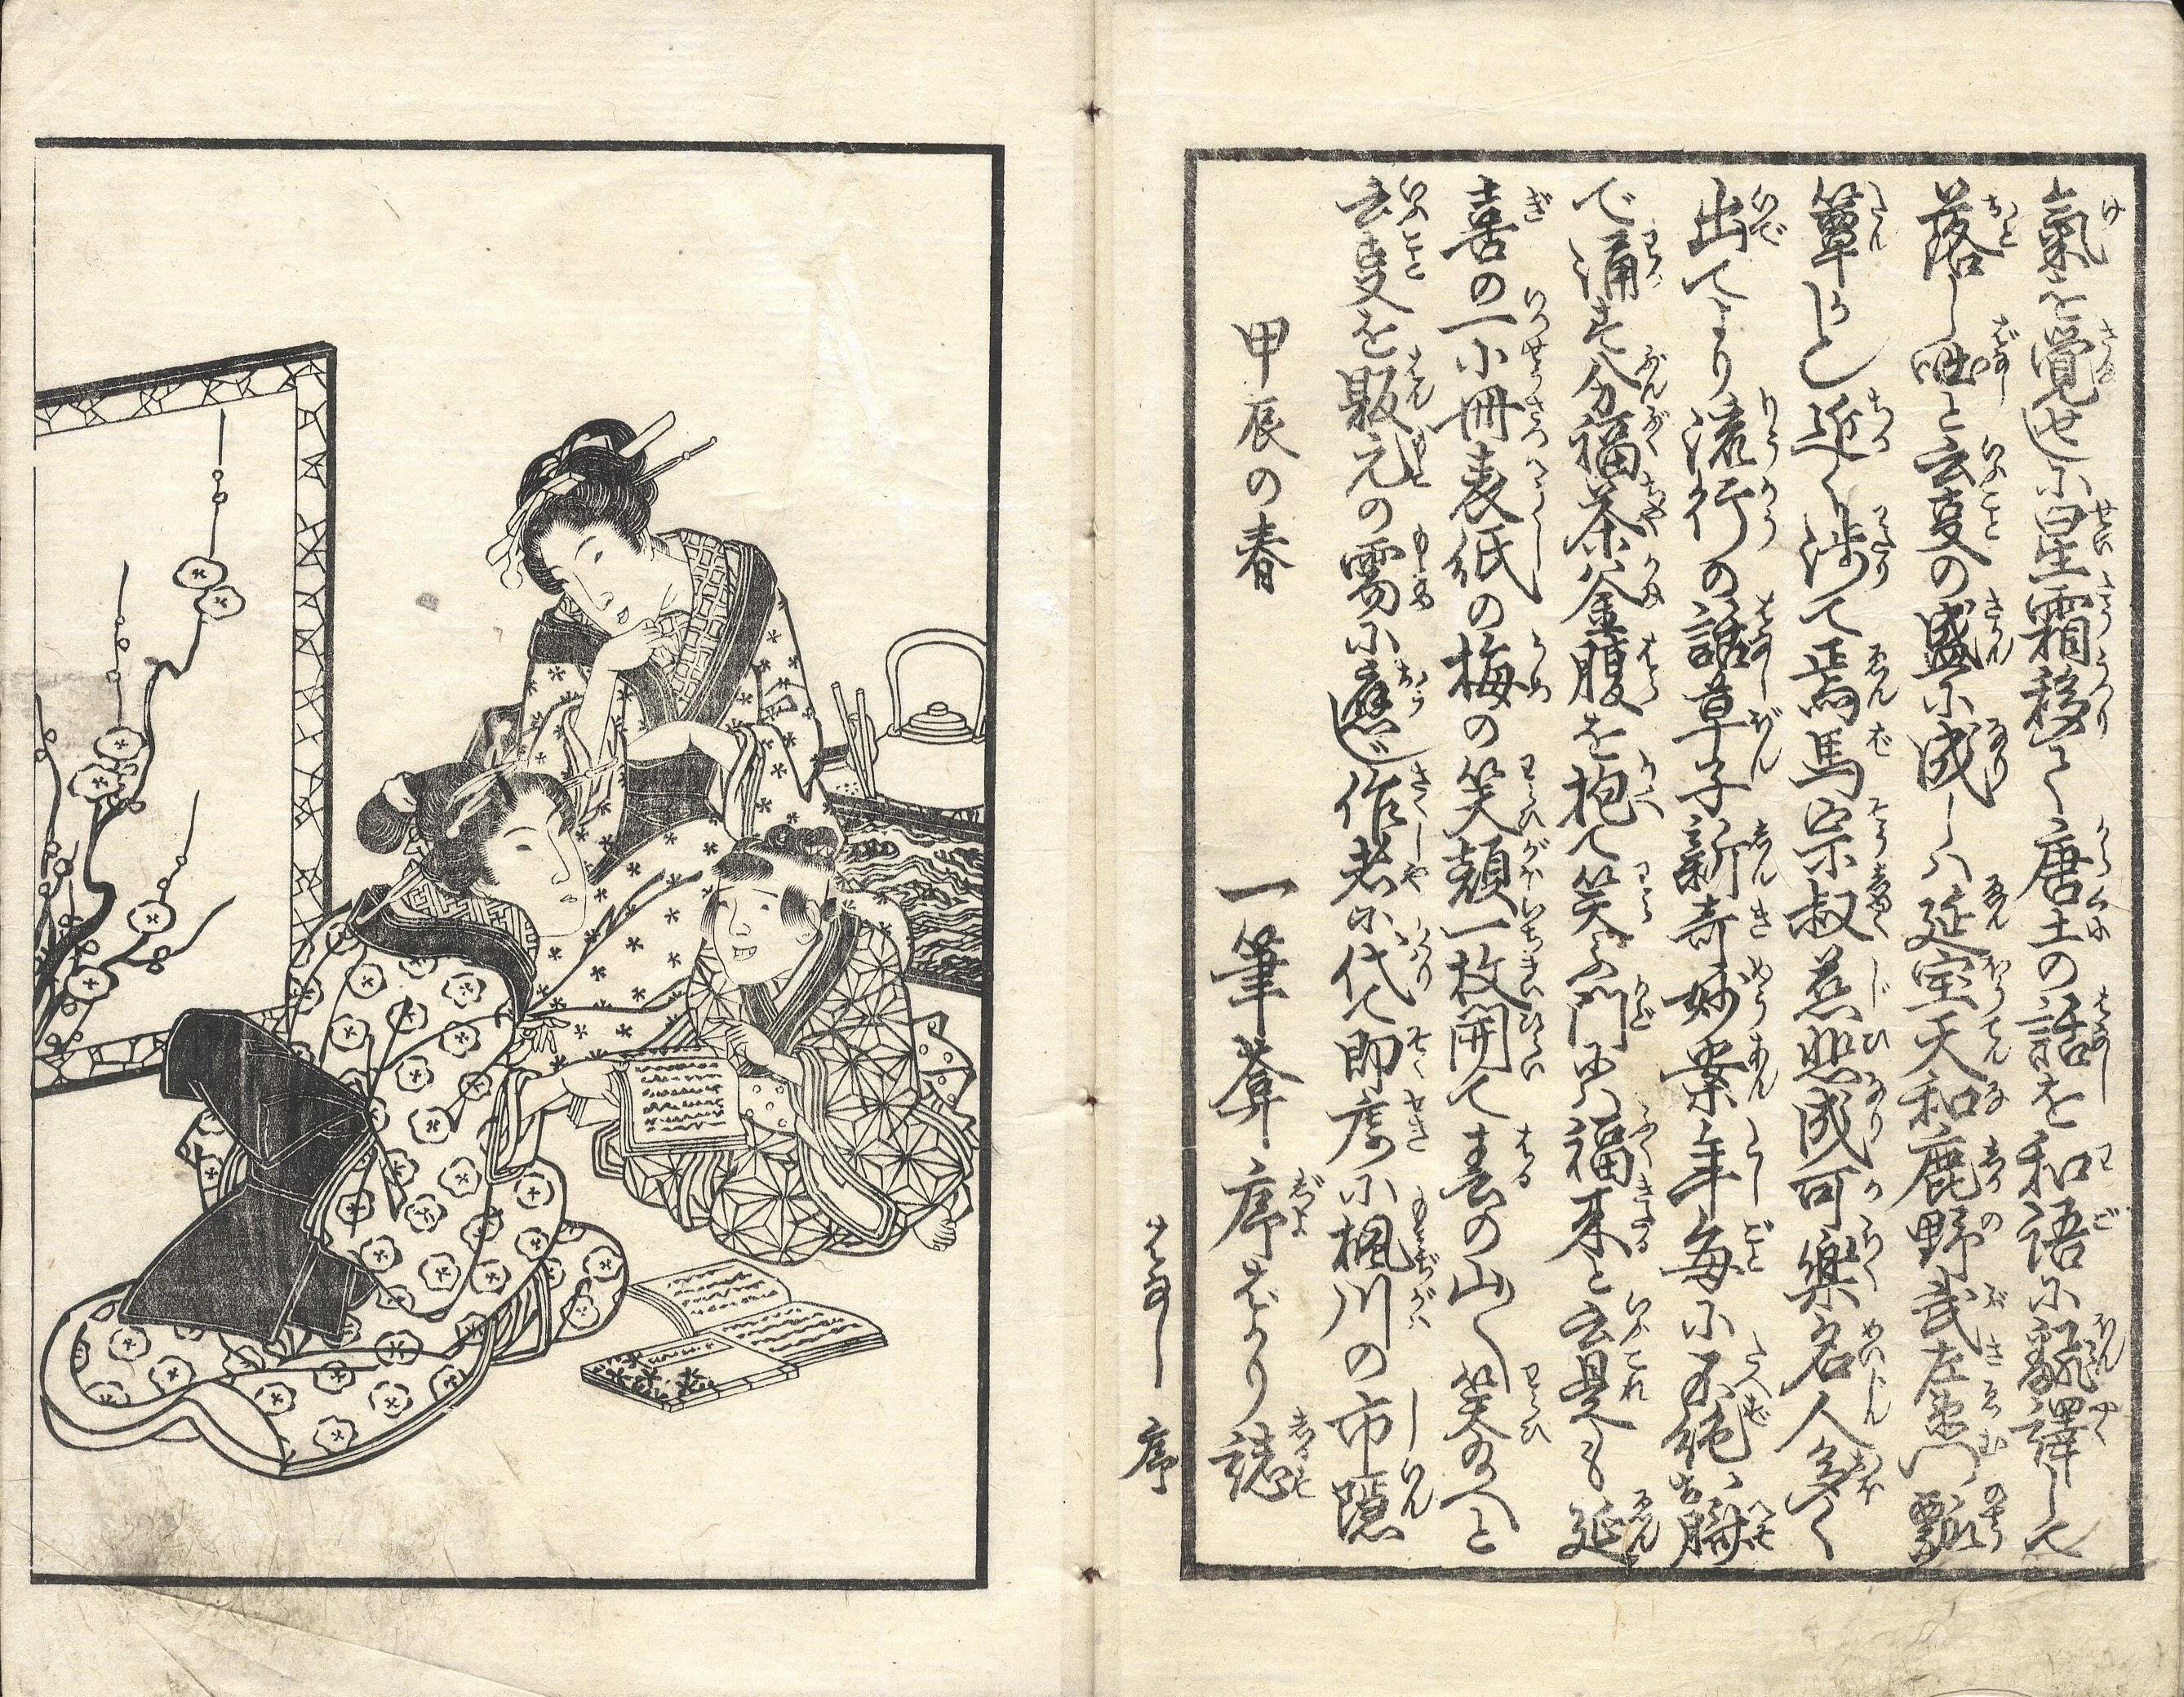 氣を覚せしに星霜移りて唐土の話を和語に飜譯して
落し咄と云事の盛に成しハ延宝天和鹿野武左衛門瓢
箪らしく近く渉て焉馬宗叔慈悲成可樂名人多く
出てより流行の話草子新奇妙案年毎に不絶お臍
で涌す分福茶釜腹を抱て笑ふ門にハ福来と云是も延
喜の一小冊表紙の梅の笑顔一枚開て春の山々笑給へと
云事を販元の需に應じ作者に代て即席に楓川の市隠
甲辰の春　一筆葊序もよりに誌
はなし　序